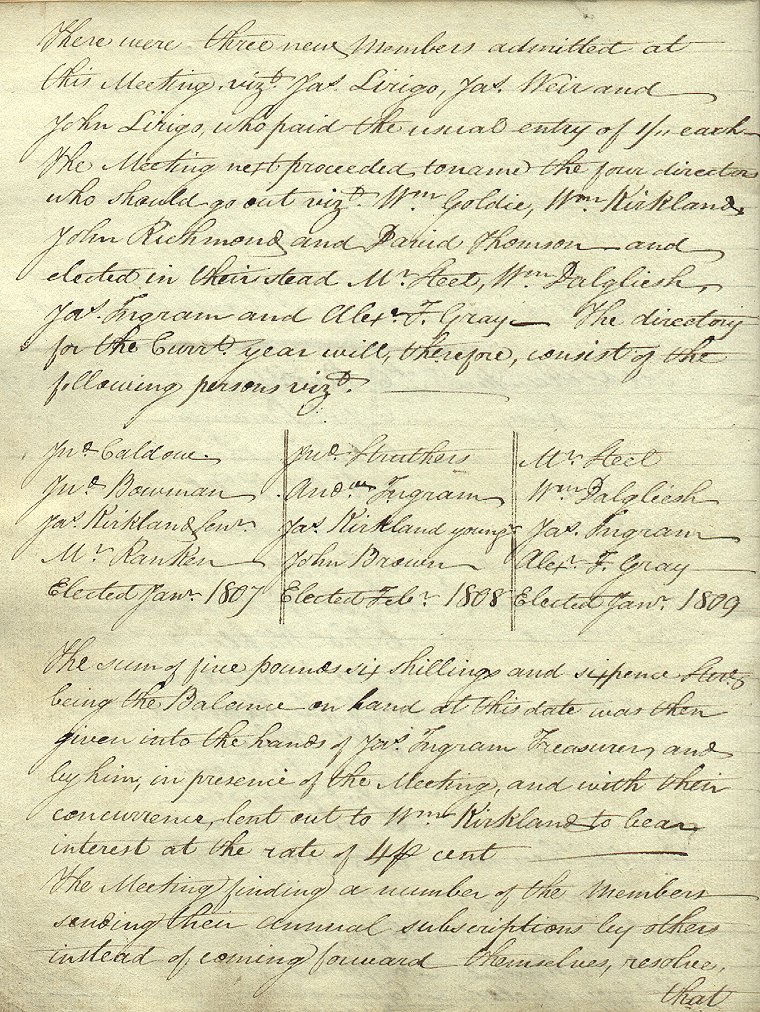 There were three new Members admitted at
this Meeting vizt. Jas. Lirigo, Jas. Weir and
John Lirigo, who paid the usual entry of 1/11 each
The Meeting next proceeded to name the four directors
who should go out vizt. Wm. Goldie, Wm. Kirkland,
John Richmond and David Thomson and
elected in their stead Mr. Steel, Wm. Dalgliesh,
Jas. Ingram and Alexr. F. Gray — The directory
for the Currt. year will, therefore, consist of the
following persons vizt.
Jno. Caldow Jno. Struthers Mr. Steel
Jno. Bowman Andw. Ingram Wm. Dalgliesh
Jas. Kirkland Senr. Jas. Kirkland youngr. Jas. Ingram
Mr. Ranken John Brown Alexr. F. Gray
Elected Jany. 1807 Elected Feby. 1808 Elected Jany. 1809
The sum of five pounds six shillings and sixpence
being the Balance on hand at this date was then
given into the hands of Jas. Ingram Treasurer, and
by him, in presence of the Meeting, and with their
concurrence, lent out to Wm. Kirkland to bear
interest at the rate of 4 ⅌ cent
The Meeting finding a number of the Members
sending their annual subscriptions by others
instead of coming forward themselves, resolve,
that